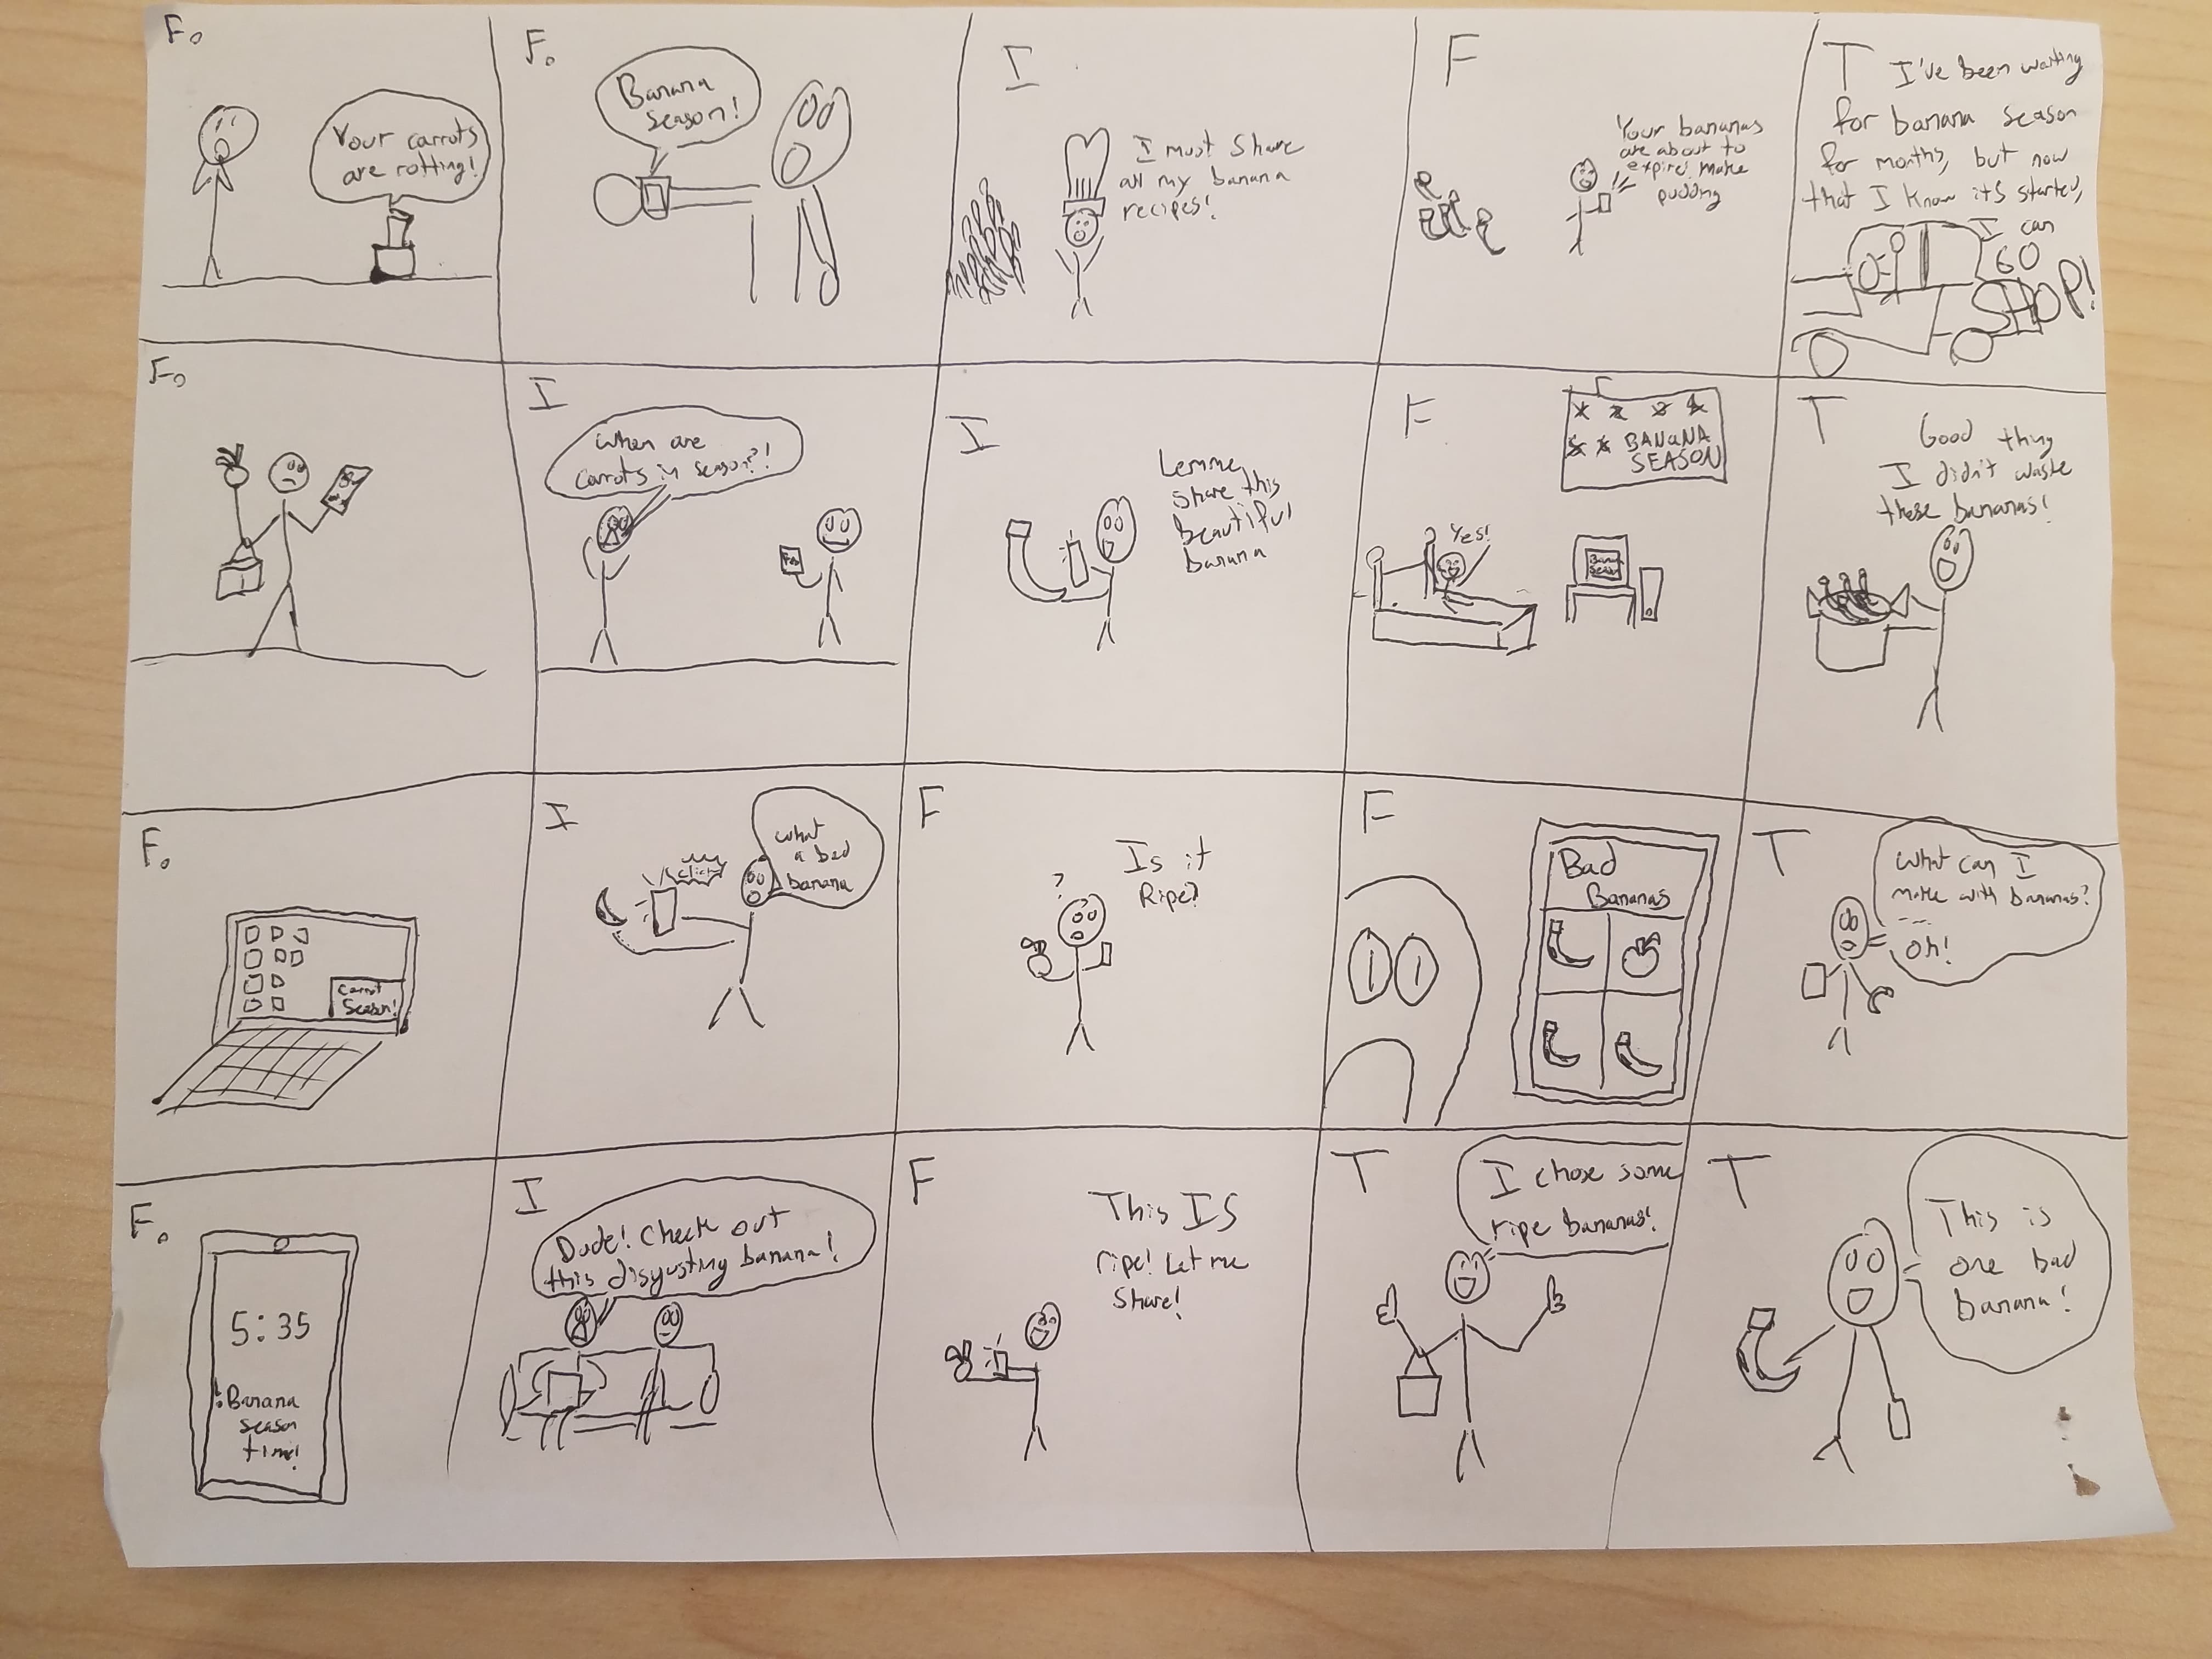 F.
Your carrots
are rotting!
F.
Banana
Season!
I
I must share
all my banana
recipes!
F
Your bananas
are about to
expire! Make
pudding
T
I've been waiting
for banana season
for months, but now
that I know its started,
I can
GO
SHOP!
F.
I
When are
carrots in season?!
I
Lemme
share this
beautiful
banana
F
BANANA
SEASON
Yes!
Banana
Season
T
Good thing
I didn't waste
these bananas!
F.
Carrot
Season!
I
click
What
a bad
banana
F
?
Is it
Ripe?
F
Bad
Bananas
T
What can I
make with bananas?
...
Oh!
F.
5:35
! Banana
season
time!
I
Dude! Check out
this disgusting banana!
F
This IS
ripe! Let me
Share!
T
I chose some
ripe bananas!
T
This is
one bad
banana!